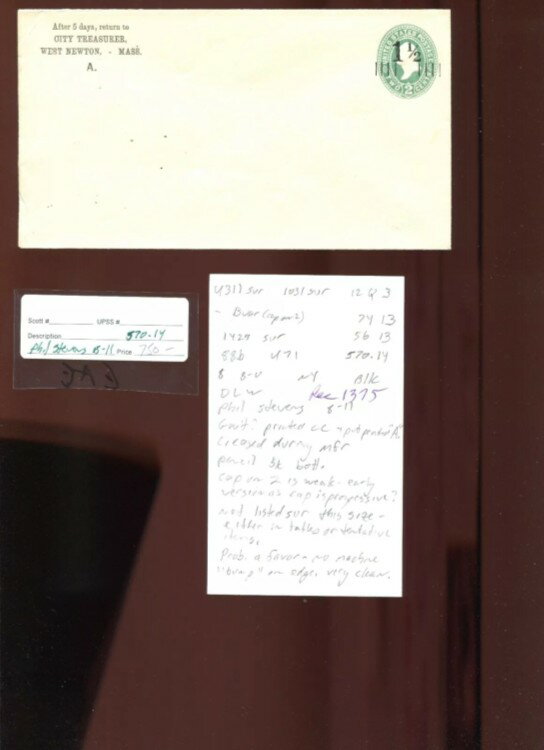 After 5 days, return to
CITY TREASURER,
WEST NEWTON, - MASS.
A.
UNITED STATES POSTAGE
1 1/2
TWO 2 CENTS
Scott # UPSS #
Description 570.14
Phil Stevens 8-11 Price 750 -
U311 sur 1031 sur 12 Q 3
- Bvar (cap on 2) 74 13
1425 sur 56 13
88b U71 570.14
8 B-U NY Blk
DLW Rec 1375
Phil Stevens 8-11
Govt? printed cc - put printed "A".
Creased during mfr
pencil bk bott.
cap on 2 is weak - early
version as cap is progressive?
not listed sur this size -
either in tables or tentative
items.
Prob. a favor - no machine
"bump" on edge. very clean.